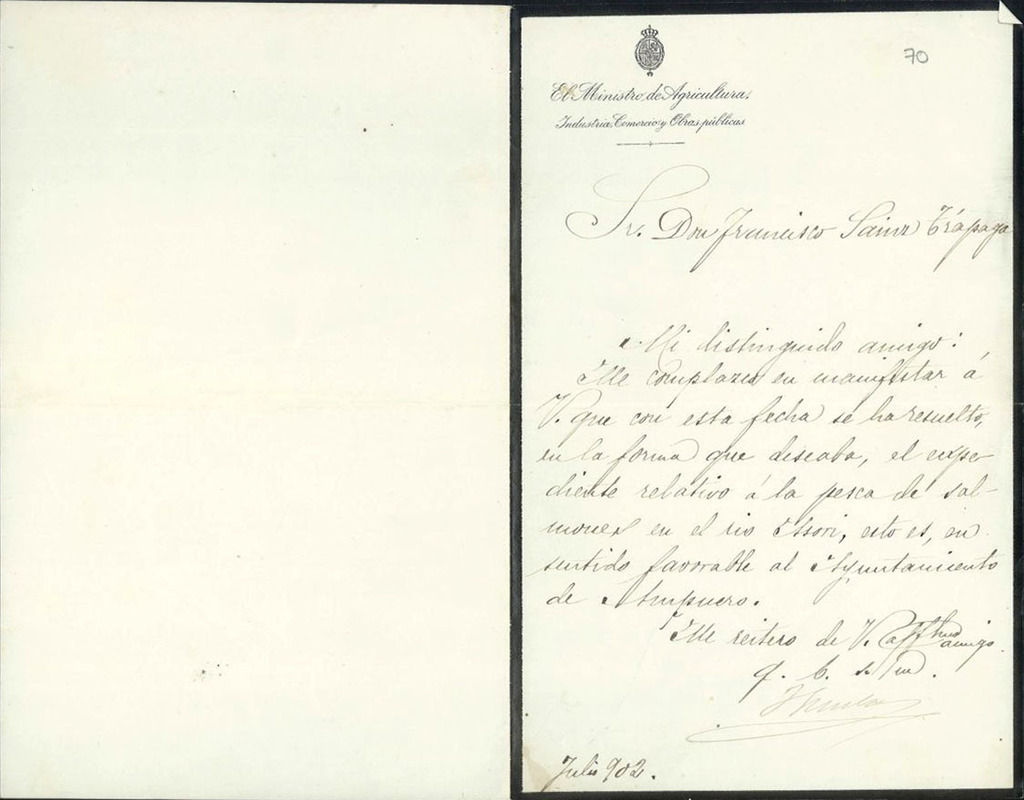 70
El Ministro de Agricultura,
Industria, Comercio y Obras públicas
Sr. Don Francisco Sainz Trápaga
Mi distinguido amigo:
Me complazco en manifestar á
V. que con esta fecha se ha resuelto,
en la forma que deseaba, el expe-
diente relativo á la pesca de sal-
mones en el rio Asson, esto es, en
sentido favorable al Ayuntamiento
de Ampuero.
Me reitero de V. affmo amigo
q. b. s. m.
Julio 902.